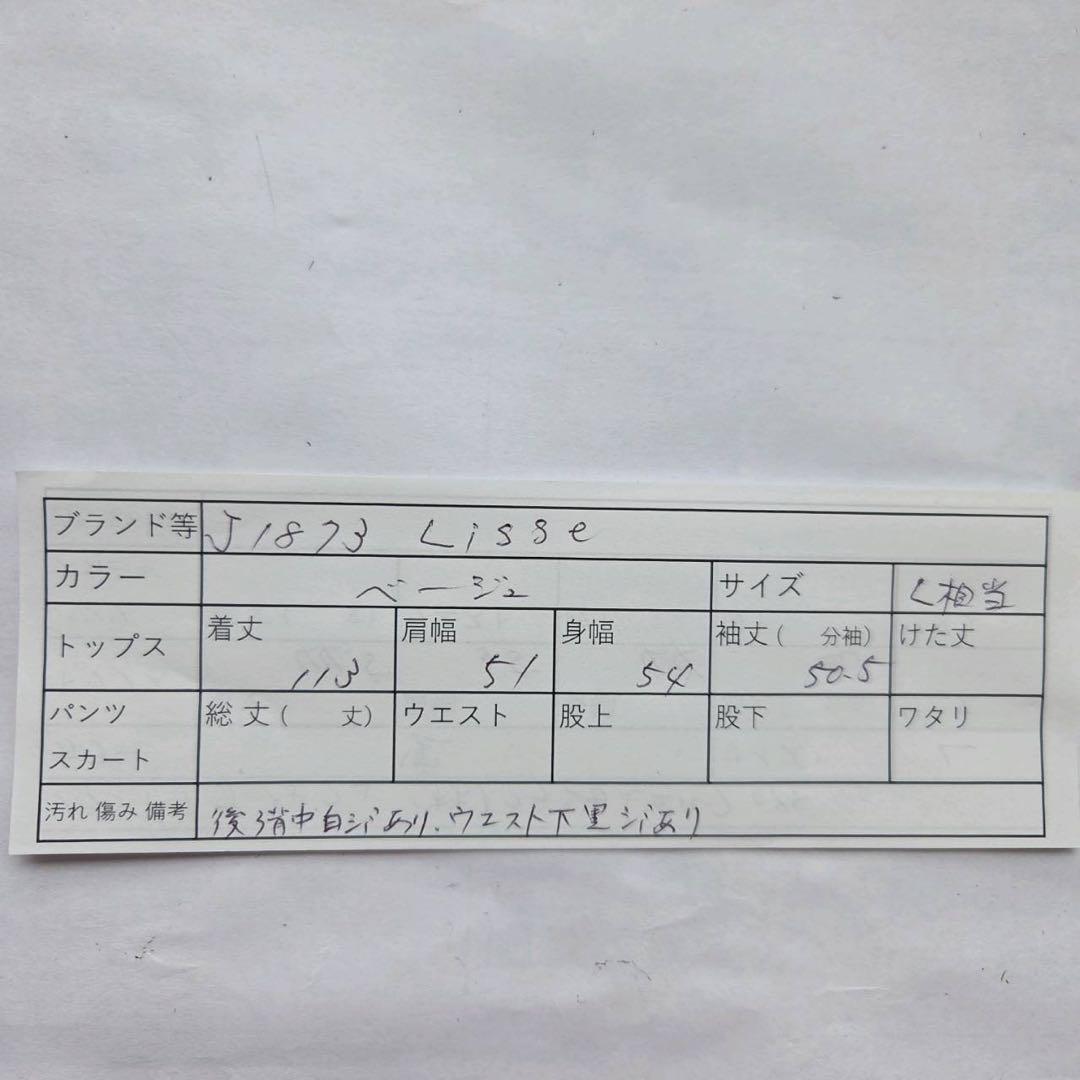 ブランド等 J1873 Lisse
カラー ベージュ サイズ L相当
トップス 着丈 113 肩幅 51 身幅 54 袖丈(　分袖) 50.5 けた丈
パンツ スカート 総丈(　丈) ウエスト 股上 股下 ワタリ
汚れ 傷み 備考 後背中白ジあり、ウエスト下黒ジあり